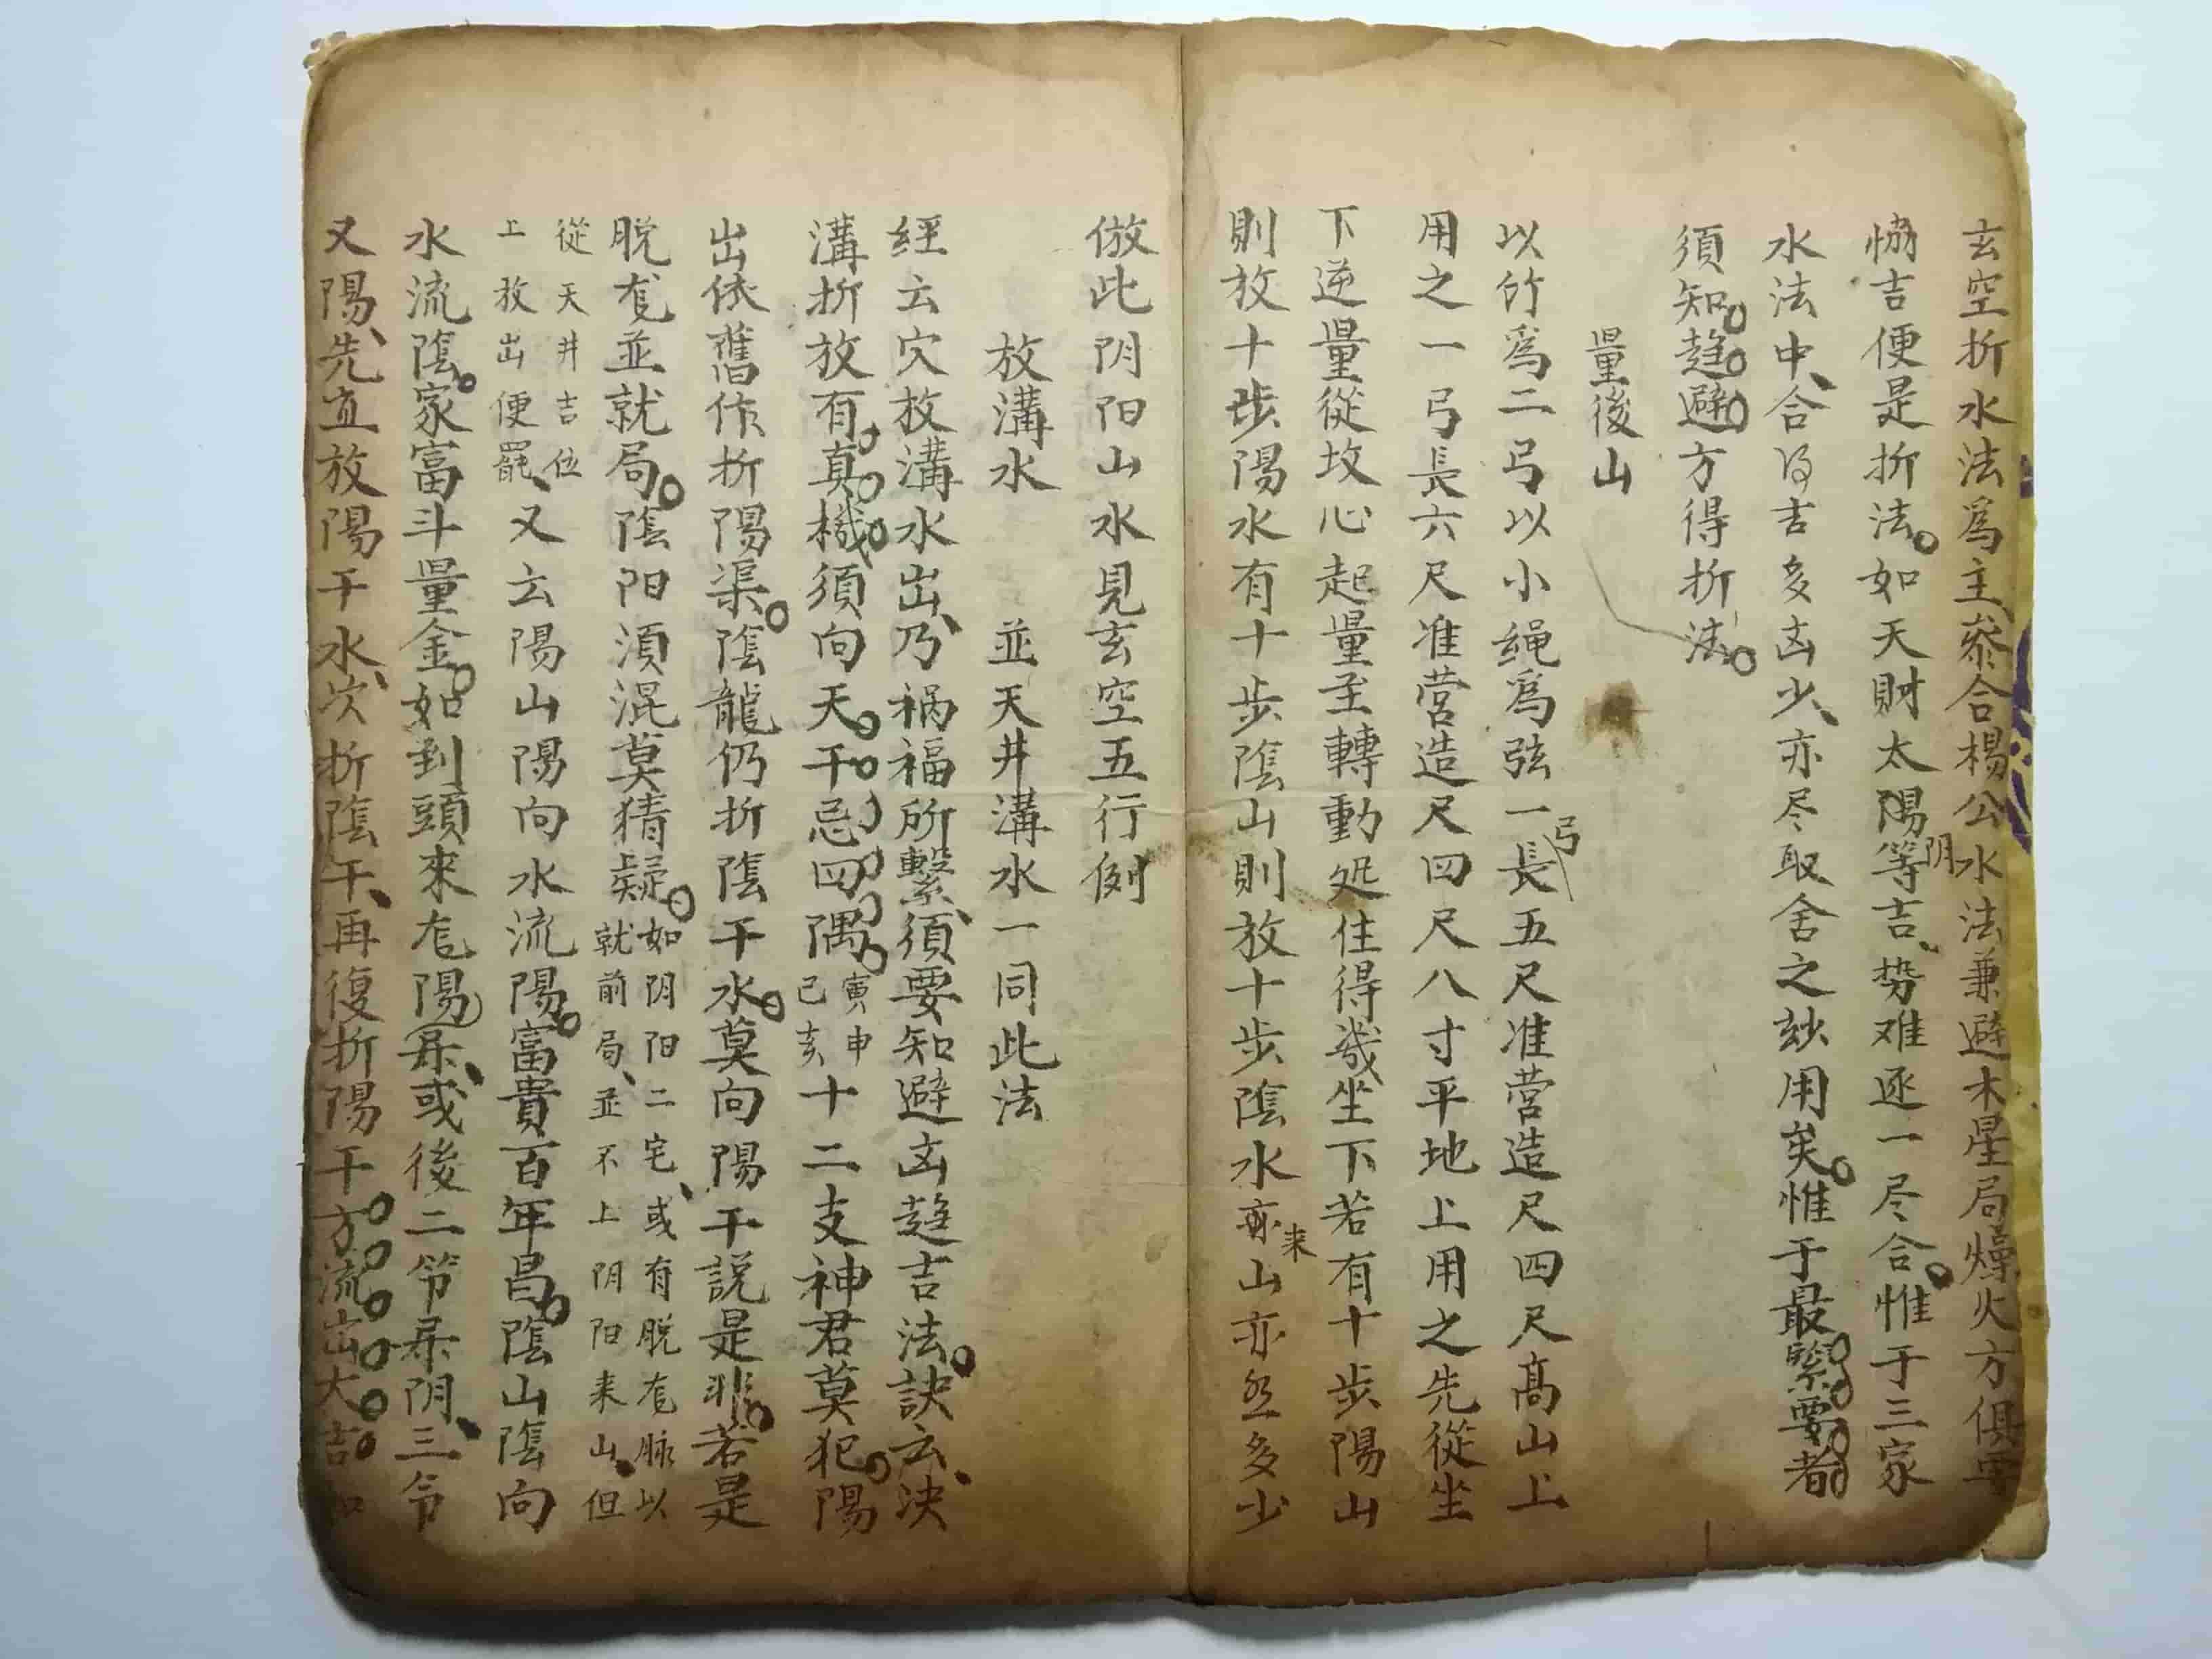 玄空折水法爲主叅合楊公水法兼避木星局燥火方俱
恊吉便是折法如天財太陽阴等吉势难逐一尽合惟于三家
水法中合得吉多凶少亦尽取舍之妙用矣惟于最緊要者
須知趨避方得折法
量後山
以竹爲二弓以小绳爲弦一弓長五尺准营造尺四尺高山上
用之一弓長六尺准营造尺四尺八寸平地上用之先從坐
下逆量從坟心起量至轉動処住得幾坐下若有十步陽山
則放十步陽水有十步陰山則放十步陰水來山亦然多少
倣此阴阳山水見玄空五行例
放溝水 並天井溝水一同此法
經云穴放溝水出乃禍福所繫須要知避凶趨吉法訣云决
溝折放有真機須向天干忌四隅寅申己亥十二支神君莫犯陽
出依舊作折陽渠陰龍仍折陰干水莫向陽干説是非若是
脱龙並就局陰阳須混莫猜疑如阴阳二宅或有脱龙脉以
就前局並不上阴阳来山但
從天井吉位
上放出便罷又云陽山陽向水流陽富貴百年昌陰山陰向
水流陰家富斗量金如到頭來龙陽屬或後二節屬阴三節
又陽先直放陽干水次折陰干再復折陽干方流出大吉如